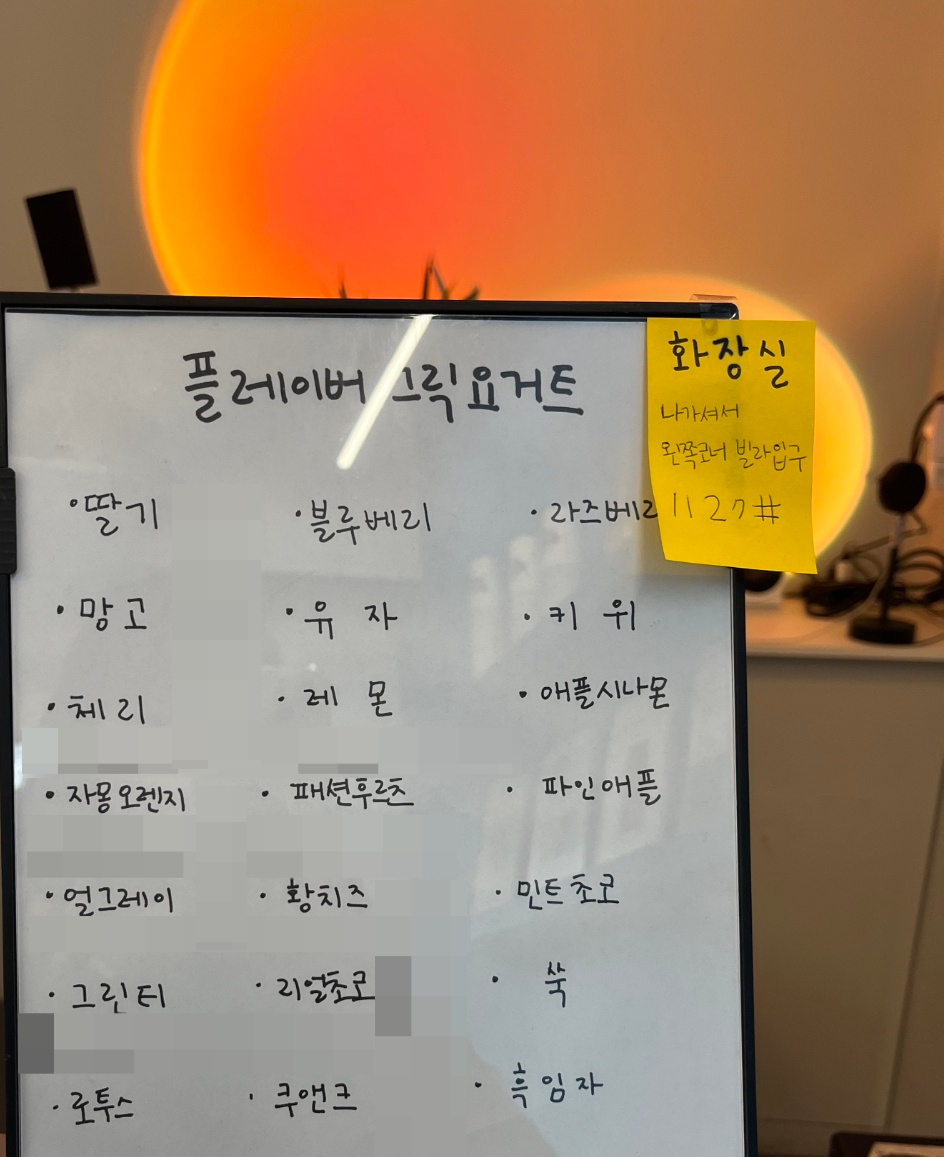 플레이버 그릭요거트
화장실
나가셔서
왼쪽코너 빌라입구
1127#
· 딸기 · 블루베리 · 라즈베리
· 망고 · 유자 · 키위
· 체리 · 레몬 · 애플시나몬
· 자몽오렌지 · 패션후르츠 · 파인애플
· 얼그레이 · 황치즈 · 민트초코
· 그린티 · 리얼초코 · 쑥
· 로투스 · 쿠앤크 · 흑임자